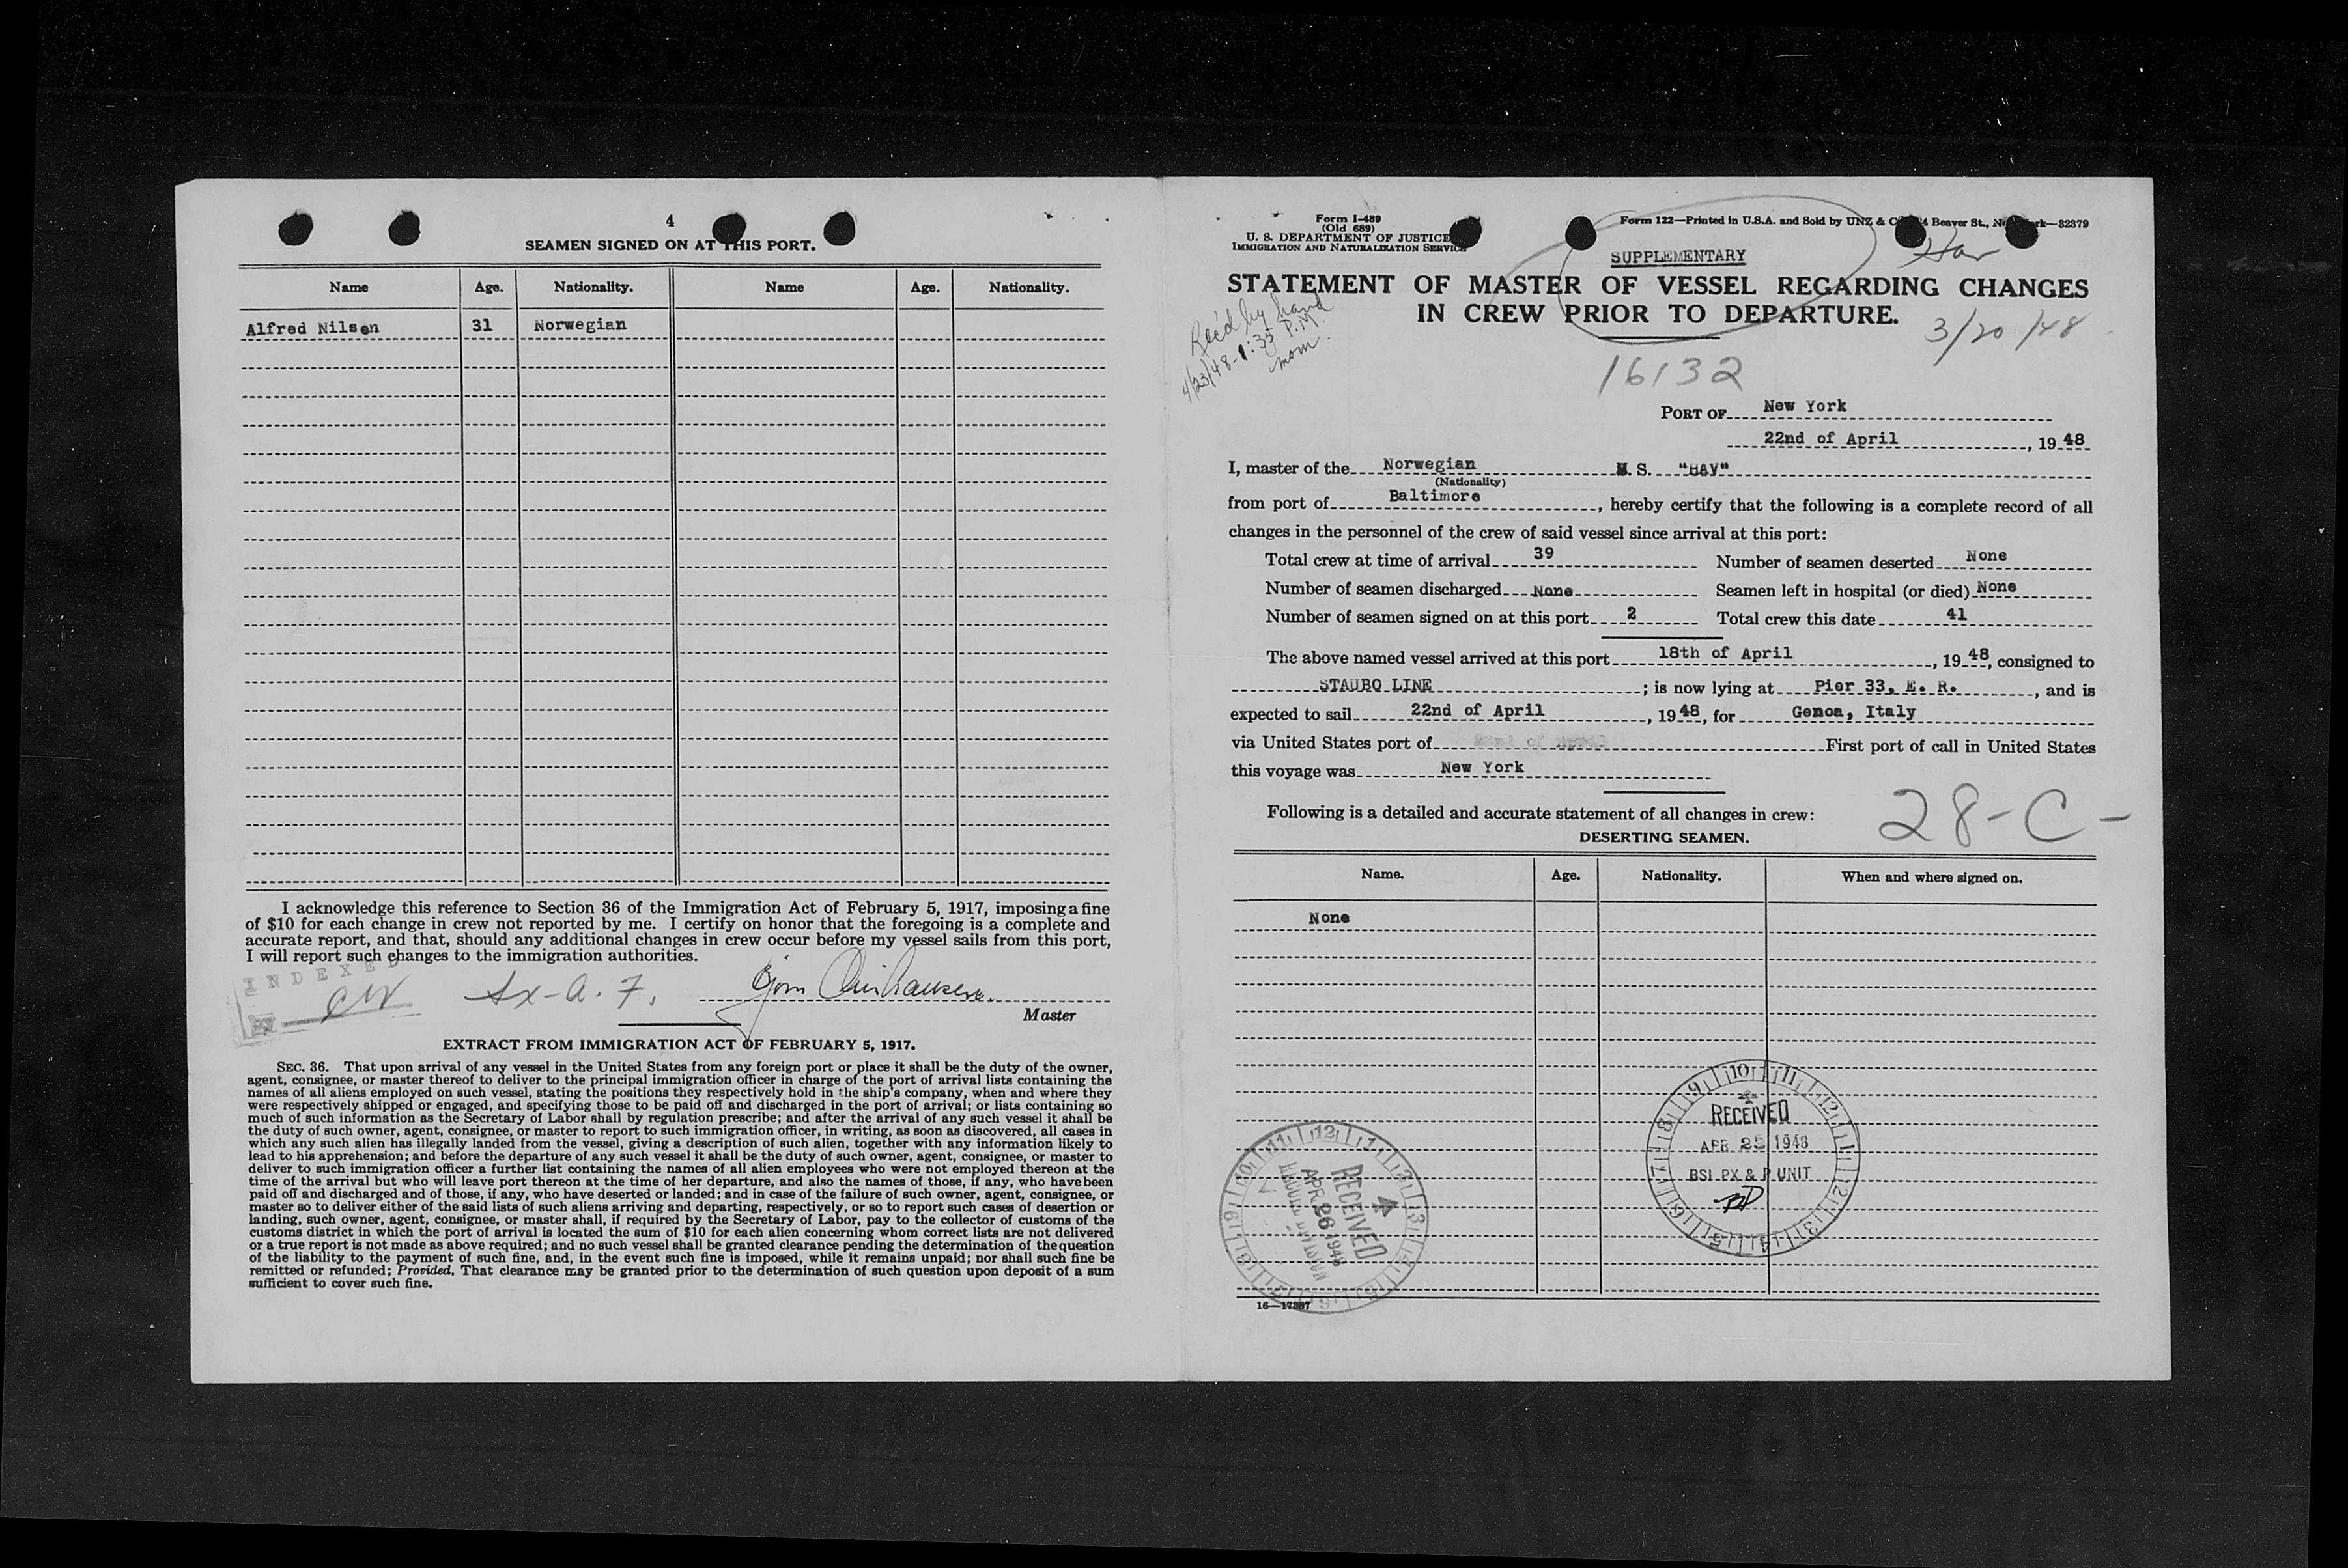 4
SEAMEN SIGNED ON AT THIS PORT.
Name Age. Nationality. Name Age. Nationality.
Alfred Nilsen 31 Norwegian
I acknowledge this reference to Section 36 of the Immigration Act of February 5, 1917, imposing a fine
of $10 for each change in crew not reported by me. I certify on honor that the foregoing is a complete and
accurate report, and that, should any additional changes in crew occur before my vessel sails from this port,
I will report such changes to the immigration authorities.
INDEXED
Master
EXTRACT FROM IMMIGRATION ACT OF FEBRUARY 5, 1917.
SEC. 36. That upon arrival of any vessel in the United States from any foreign port or place it shall be the duty of the owner,
agent, consignee, or master thereof to deliver to the principal immigration officer in charge of the port of arrival lists containing the
names of all aliens employed on such vessel, stating the positions they respectively hold in the ship's company, when and where they
were respectively shipped or engaged, and specifying those to be paid off and discharged in the port of arrival; or lists containing so
much of such information as the Secretary of Labor shall by regulation prescribe; and after the arrival of any such vessel it shall be
the duty of such owner, agent, consignee, or master to report to such immigration officer, in writing, as soon as discovered, all cases in
which any such alien has illegally landed from the vessel, giving a description of such alien, together with any information likely to
lead to his apprehension; and before the departure of any such vessel it shall be the duty of such owner, agent, consignee, or master to
deliver to such immigration officer a further list containing the names of all alien employees who were not employed thereon at the
time of the arrival but who will leave port thereon at the time of her departure, and also the names of those, if any, who have been
paid off and discharged and of those, if any, who have deserted or landed; and in case of the failure of such owner, agent, consignee, or
master so to deliver either of the said lists of such aliens arriving and departing, respectively, or so to report such cases of desertion or
landing, such owner, agent, consignee, or master shall, if required by the Secretary of Labor, pay to the collector of customs of the
customs district in which the port of arrival is located the sum of $10 for each alien concerning whom correct lists are not delivered
or a true report is not made as above required; and no such vessel shall be granted clearance pending the determination of the question
of the liability to the payment of such fine, and, in the event such fine is imposed, while it remains unpaid; nor shall such fine be
remitted or refunded; Provided, That clearance may be granted prior to the determination of such question upon deposit of a sum
sufficient to cover such fine.
Form I-489
(Old 689)
U. S. DEPARTMENT OF JUSTICE
IMMIGRATION AND NATURALIZATION SERVICE
Form 122—Printed in U.S.A. and Sold by UNZ & Beaver St., 32379
SUPPLEMENTARY
STATEMENT OF MASTER OF VESSEL REGARDING CHANGES
IN CREW PRIOR TO DEPARTURE.
Rec'd by hand
4/23/48-1:35 P.M.
3/20/48
16132
PORT OF New York
22nd of April, 1948
I, master of the Norwegian M. S. "HAV"
(Nationality)
from port of Baltimore, hereby certify that the following is a complete record of all
changes in the personnel of the crew of said vessel since arrival at this port:
Total crew at time of arrival 39 Number of seamen deserted None
Number of seamen discharged None Seamen left in hospital (or died) None
Number of seamen signed on at this port 2 Total crew this date 41
The above named vessel arrived at this port 18th of April, 1948, consigned to
STAUBO LINE; is now lying at Pier 33, E. R., and is
expected to sail 22nd of April, 1948, for Genoa, Italy
via United States port of First port of call in United States
this voyage was New York
Following is a detailed and accurate statement of all changes in crew:
28-C-
DESERTING SEAMEN.
Name. Age. Nationality. When and where signed on.
None
RECEIVED
APR 1948
BSI PX & P UNIT
RECEIVED
APR 26 1948
16—17387